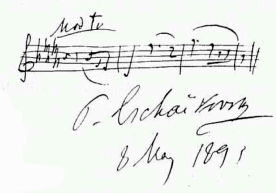 Mod to
P. Tschaïkovsky
8 May 1891